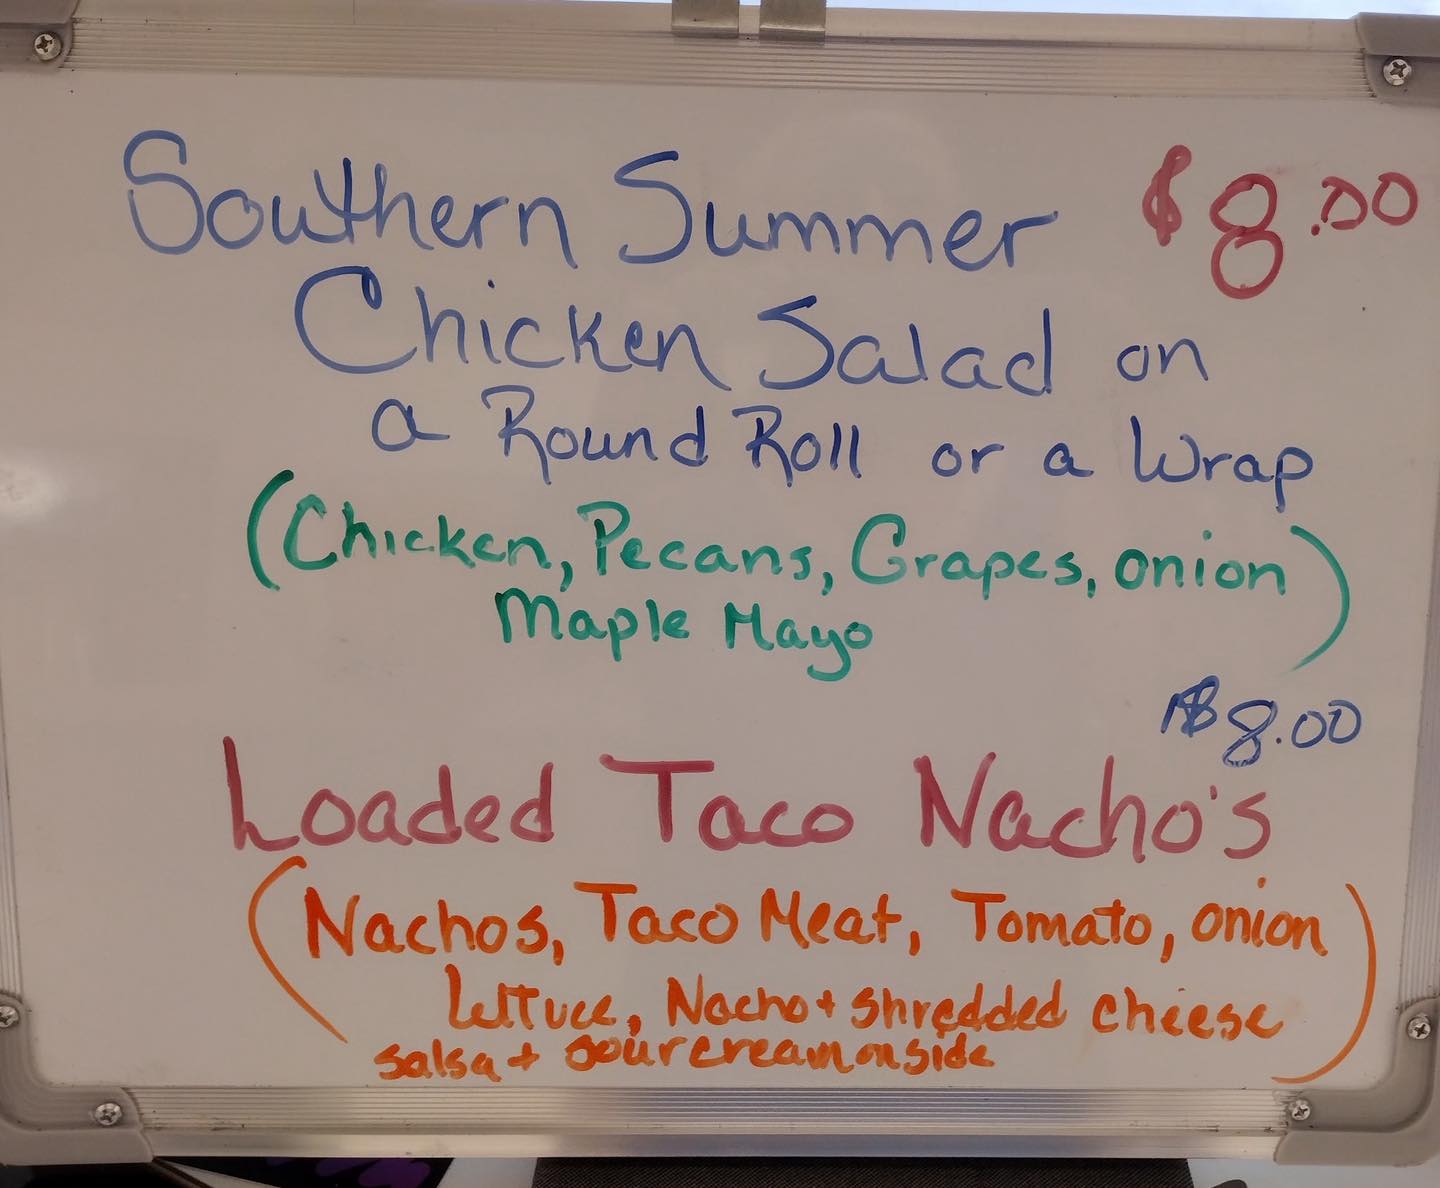 Southern Summer $8.00
Chicken Salad on
a Round Roll or a Wrap
(Chicken, Pecans, Grapes, onion
Maple Mayo)
$8.00
Loaded Taco Nacho's
(Nachos, Taco Meat, Tomato, onion
Lettuce, Nacho + shredded cheese
salsa + sour cream on side)